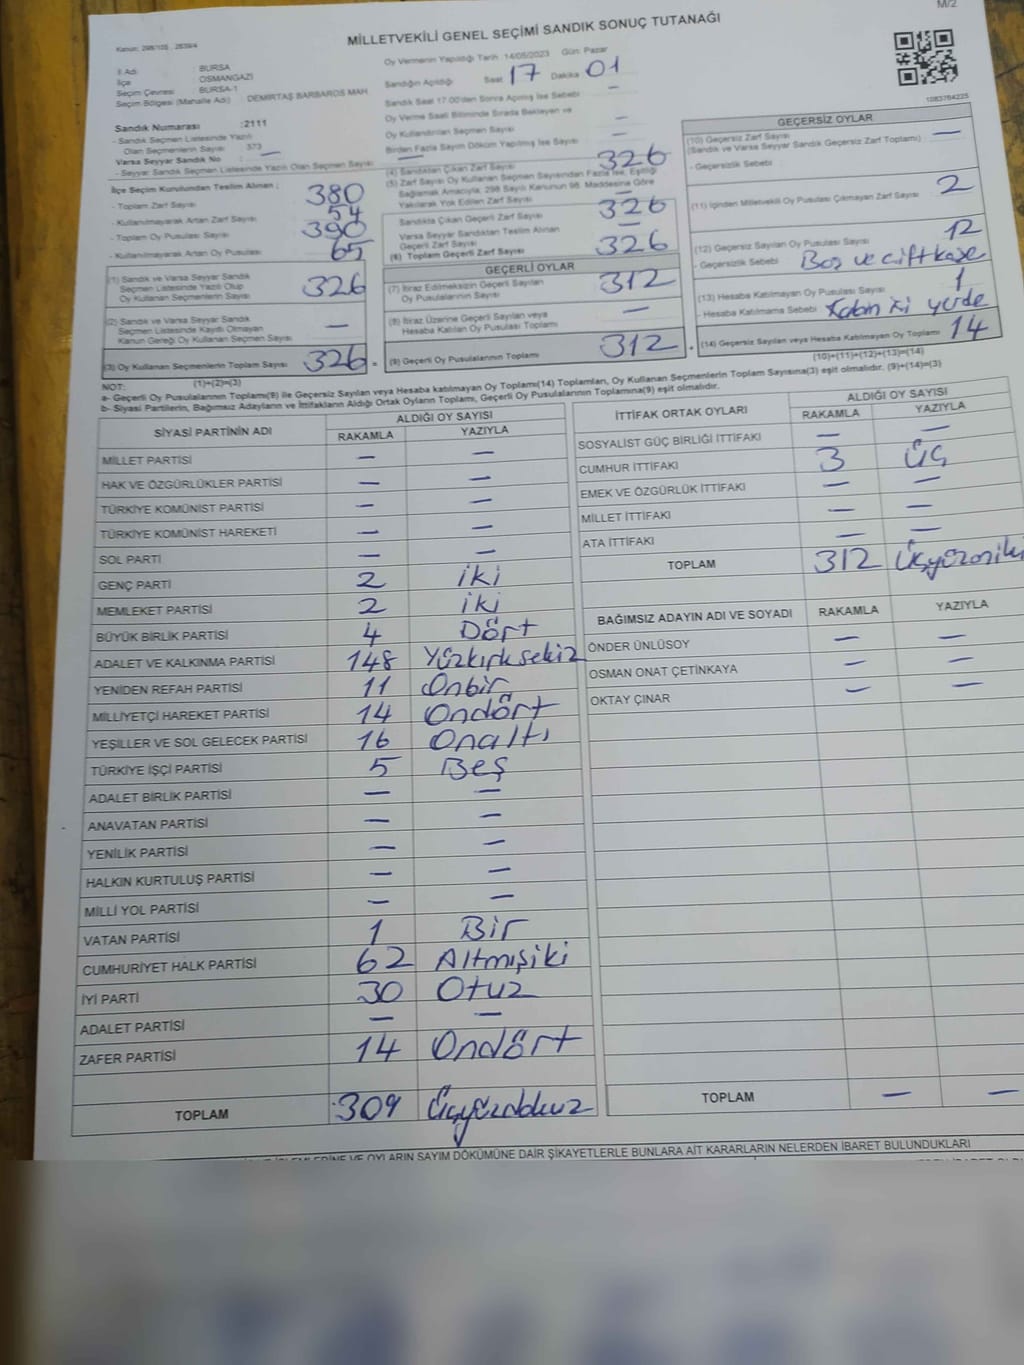 M/2
MİLLETVEKİLİ GENEL SEÇİMİ SANDIK SONUÇ TUTANAĞI
Kanun: 298/105 , 2839/4
İl Adı : BURSA
İlçe : OSMANGAZİ
Seçim Çevresi : BURSA-1
Seçim Bölgesi (Mahalle Adı) : DEMİRTAŞ BARBAROS MAH
Sandık Numarası :2111
- Sandık Seçmen Listesinde Yazılı
Olan Seçmenlerin Sayısı : 373
Varsa Seyyar Sandık No : —
- Seyyar Sandık Seçmen Listesinde Yazılı Olan Seçmen Sayısı : —
Oy Vermenin Yapıldığı Tarih :14/05/2023 Gün: Pazar
Sandığın Açıldığı Saat 17 Dakika 01
Sandık Saat 17.00'den Sonra Açılmış İse Sebebi : —
Oy Verme Saati Bitiminde Sırada Bekleyen ve
Oy Kullandırılan Seçmen Sayısı —
Birden Fazla Sayım Döküm Yapılmış İse Sayısı —
İlçe Seçim Kurulundan Teslim Alınan ;
- Toplam Zarf Sayısı : 380
- Kullanılmayarak Artan Zarf Sayısı : 54
- Toplam Oy Pusulası Sayısı : 390
- Kullanılmayarak Artan Oy Pusulası : 65
(1) Sandık ve Varsa Seyyar Sandık
Seçmen Listesinde Yazılı Olup
Oy Kullanan Seçmenlerin Sayısı 326
(2) Sandık ve Varsa Seyyar Sandık
Seçmen Listesinde Kaydı Olmayan
Kanun Gereği Oy Kullanan Seçmen Sayısı —
(3) Oy Kullanan Seçmenlerin Toplam Sayısı 326
(1)+(2)=(3)
(4) Sandıktan Çıkan Zarf Sayısı 326
(5) Zarf Sayısı Oy Kullanan Seçmen Sayısından Fazla İse, Eşitliği
Sağlamak Amacıyla, 298 Sayılı Kanunun 98. Maddesine Göre
Yakılarak Yok Edilen Zarf Sayısı —
Sandıkta Çıkan Geçerli Zarf Sayısı 326
Varsa Seyyar Sandıktan Teslim Alınan
Geçerli Zarf Sayısı —
(6) Toplam Geçerli Zarf Sayısı 326
GEÇERLİ OYLAR
(7) İtiraz Edilmeksizin Geçerli Sayılan
Oy Pusulalarının Sayısı 312
(8) İtiraz Üzerine Geçerli Sayılan veya
Hesaba Katılan Oy Pusulası Toplamı —
= (9) Geçerli Oy Pusulalarının Toplamı 312
1083764225
GEÇERSİZ OYLAR
(10) Geçersiz Zarf Sayısı
(Sandık ve Varsa Seyyar Sandık Geçersiz Zarf Toplamı) : —
- Geçersizlik Sebebi :
(11) İçinden Milletvekili Oy Pusulası Çıkmayan Zarf Sayısı : 2
(12) Geçersiz Sayılan Oy Pusulası Sayısı 12
- Geçersizlik Sebebi Boş ve çift kaşe
(13) Hesaba Katılmayan Oy Pusulası Sayısı 1
- Hesaba Katılmama Sebebi iki yerde
+ (14) Geçersiz Sayılan veya Hesaba Katılmayan Oy Toplamı 14
(10)+(11)+(12)+(13)=(14)
NOT:
a- Geçerli Oy Pusulalarının Toplamı(9) ile Geçersiz Sayılan veya Hesaba Katılmayan Oy Toplamı(14) Toplamları, Oy Kullanan Seçmenlerin Toplam Sayısına(3) eşit olmalıdır. (9)+(14)=(3)
b- Siyasi Partilerin, Bağımsız Adayların ve İttifakların Aldığı Ortak Oyların Toplamı, Geçerli Oy Pusulalarının Toplamına(9) eşit olmalıdır.
SİYASİ PARTİNİN ADI ALDIĞI OY SAYISI
RAKAMLA YAZIYLA
MİLLET PARTİSİ — —
HAK VE ÖZGÜRLÜKLER PARTİSİ — —
TÜRKİYE KOMÜNİST PARTİSİ — —
TÜRKİYE KOMÜNİST HAREKETİ — —
SOL PARTİ — —
GENÇ PARTİ 2 iki
MEMLEKET PARTİSİ 2 iki
BÜYÜK BİRLİK PARTİSİ 4 Dört
ADALET VE KALKINMA PARTİSİ 148 Yüzkırksekiz
YENİDEN REFAH PARTİSİ 11 Onbir
MİLLİYETÇİ HAREKET PARTİSİ 14 Ondört
YEŞİLLER VE SOL GELECEK PARTİSİ 16 Onaltı
TÜRKİYE İŞÇİ PARTİSİ 5 Beş
ADALET BİRLİK PARTİSİ — —
ANAVATAN PARTİSİ — —
YENİLİK PARTİSİ — —
HALKIN KURTULUŞ PARTİSİ — —
MİLLİ YOL PARTİSİ — —
VATAN PARTİSİ 1 Bir
CUMHURİYET HALK PARTİSİ 62 Altmışiki
İYİ PARTİ 30 Otuz
ADALET PARTİSİ — —
ZAFER PARTİSİ 14 Ondört
TOPLAM 309 Üçyüzdokuz
İTTİFAK ORTAK OYLARI ALDIĞI OY SAYISI
RAKAMLA YAZIYLA
SOSYALİST GÜÇ BİRLİĞİ İTTİFAKI — —
CUMHUR İTTİFAKI 3 Üç
EMEK VE ÖZGÜRLÜK İTTİFAKI — —
MİLLET İTTİFAKI — —
ATA İTTİFAKI — —
TOPLAM 312 Üçyüzoniki
BAĞIMSIZ ADAYIN ADI VE SOYADI RAKAMLA YAZIYLA
ÖNDER ÜNLÜSOY — —
OSMAN ONAT ÇETİNKAYA — —
OKTAY ÇINAR — —
TOPLAM — —
İŞLEMLERİNE VE OYLARIN SAYIM DÖKÜMÜNE DAİR ŞİKAYETLERLE BUNLARA AİT KARARLARIN NELERDEN İBARET BULUNDUKLARI